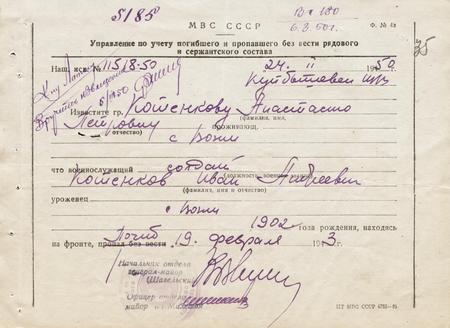 5185
МВС СССР
6.3.50г.
Ф. № 4а
35
Управление по учету погибшего и пропавшего без вести рядового
и сержантского состава
Наш исх. № 11518-50
24. II 1950
Куйбышевск
Известите гр. Котенкову Анастасию
(фамилия, имя,
Петровну
отчество)
проживающ.
с Вожи
что военнослужащий солдат
Котенков Иван Андреевич
(фамилия, имя и отчество)
уроженец
с Вожи
1902 года рождения, находясь
на фронте, пропал без вести 19 февраля 1943г.
Погиб
Начальник отдела
генерал-майор
Шавельский
Офицер отдела
майор
ЦТ МВС СССР